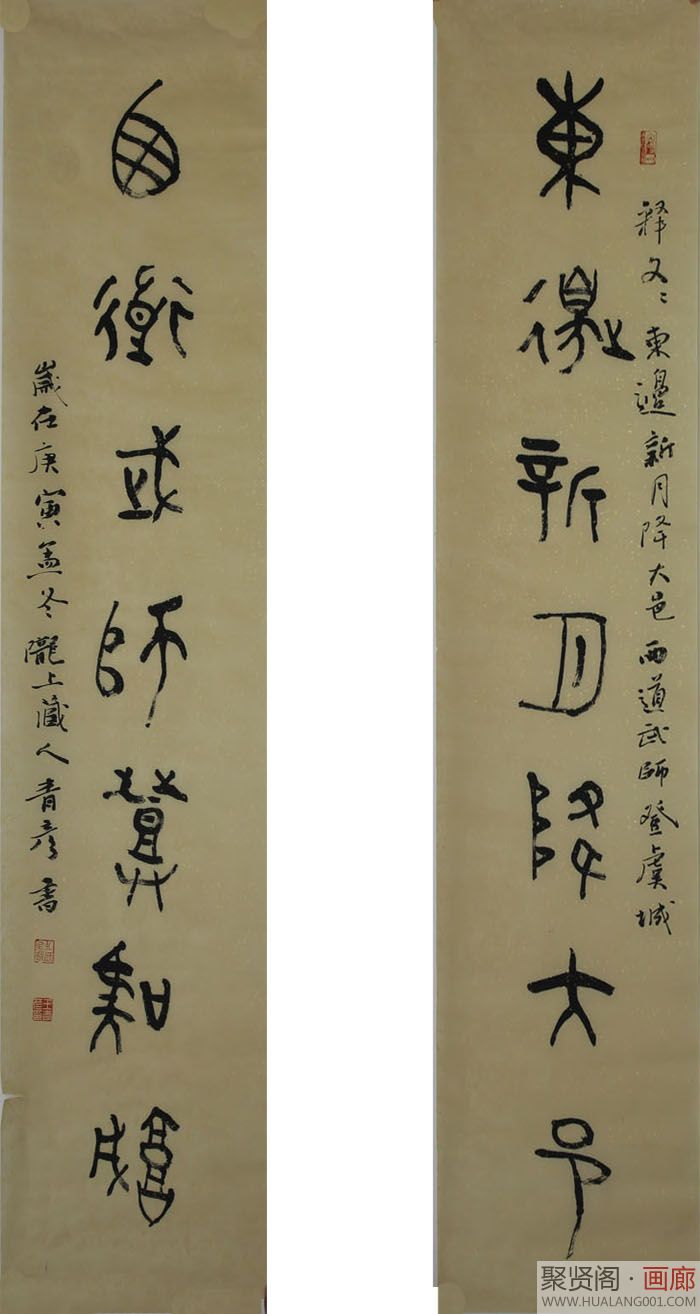 释文：東邊新月降大邑西道武師登虞城
東邊新月降大邑
西道武師登虞城
歲在庚寅孟冬隴上藏人青彦書
聚贤阁·画廊
WWW.HUALANG001.COM